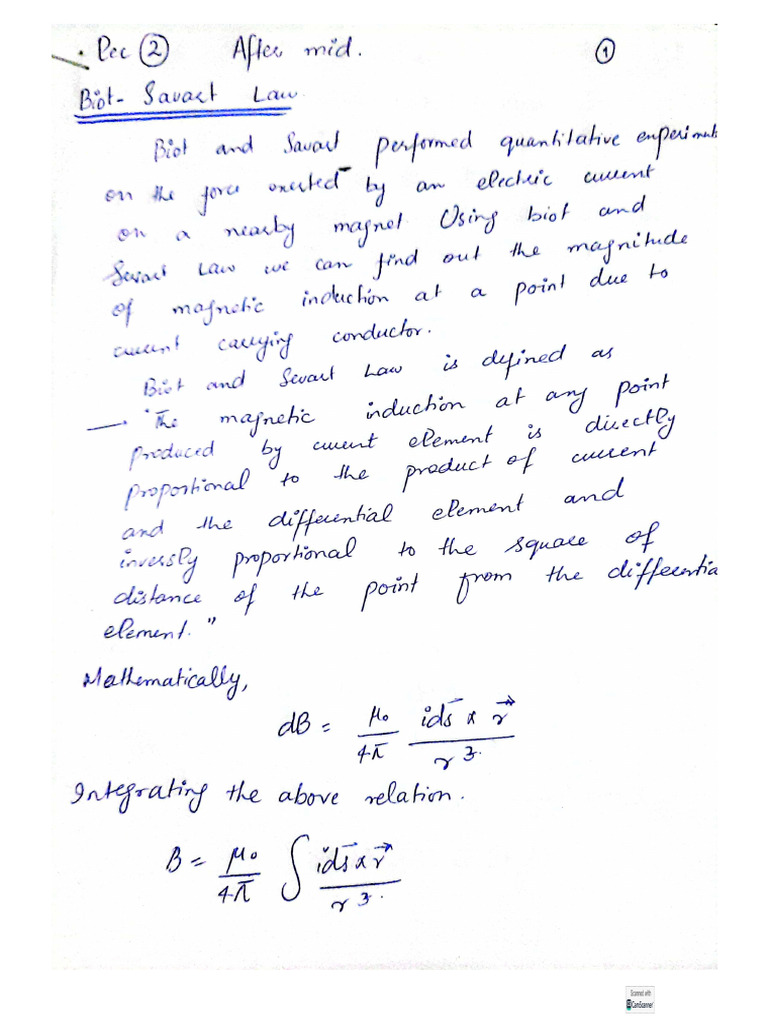 . Lec ② After mid. ①
Biot- Savart Law.
Biot and Savart performed quantitative experiment
on the force exerted by an electric current
on a nearby magnet Using biot and
Savart Law we can find out the magnitude
of magnetic induction at a point due to
current carrying conductor.
Biot and Savart Law is defined as
→ "The magnetic induction at any point
produced by current element is directly
proportional to the product of current
and the differential element and
inversly proportional to the square of
distance of the point from the differentia
element."
Mathematically,
dB = μ₀/4π ids⃗ x r⃗ / r³.
Integrating the above relation.
B = μ₀/4π ∫ ids⃗ x r⃗ / r³.
Scanned with
CamScanner